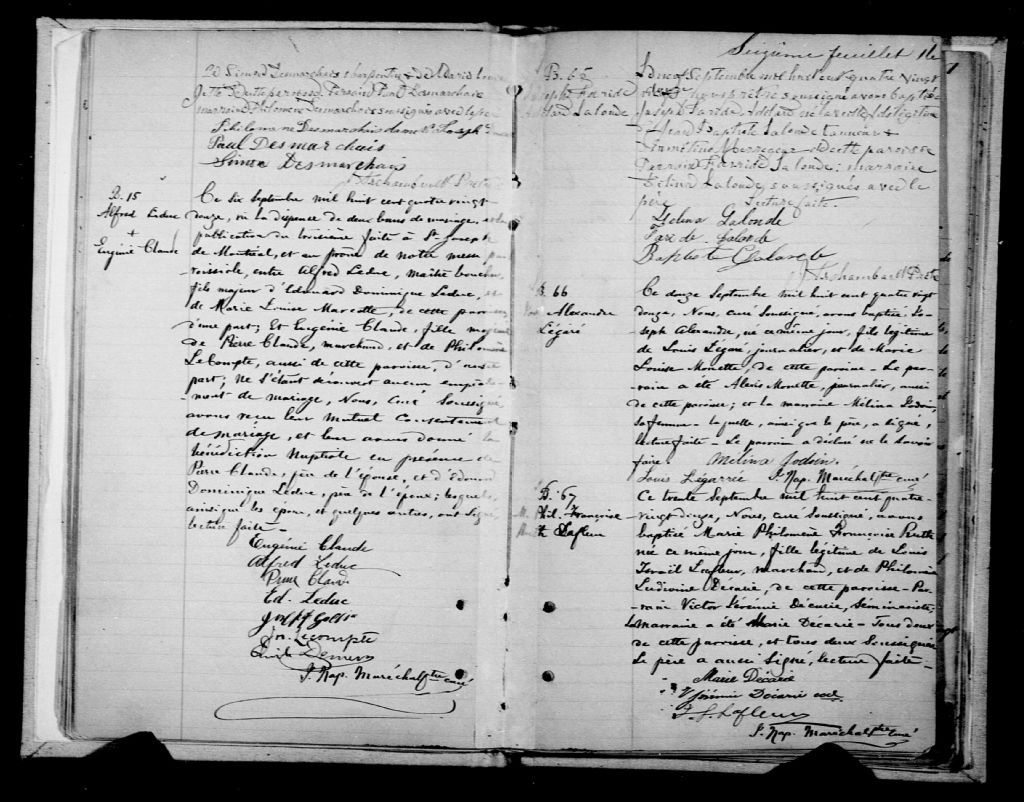 Simard Desmarchais charpentier & de Marie Louise
Jetté de cette paroisse. Parrain Paul Desmarchais
marraine Philomène Desmarchais soussignés avec le père
Philomène Desmarchais
Paul Desmarchais
Simé Desmarchais
Archambault Ptre
B. 15
Alfred Leduc
+
Eugénie Claude
Ce six Septembre mil huit cent quatre vingt
douze, vu la dispense de deux bans de mariage, et la
publication du troisième faite à St Joseph
de Montréal, et au prône de notre messe pa-
-roissiale, entre Alfred Leduc, maître boucher,
fils majeur d'Edouard Dominique Leduc, et
de Marie Louise Marcotte, de cette paroisse
d'une part; Et Eugénie Claude, fille majeure
de Pierre Claude, marchand, et de Philomène
LeCompte, aussi de cette paroisse, d'autre
part; Ne s'étant découvert aucun empêche-
-ment de mariage, Nous, curé soussigné
avons reçu leur mutuel consentement
de mariage, et leur avons donné la
bénédiction nuptiale en présence de
Pierre Claude, père de l'épouse, et d'Edouard
Dominique Leduc, père de l'époux; lesquels,
ainsi que les époux, et quelques autres, ont signé,
lecture faite -
Eugénie Claude
Alfred Leduc
Pierre Claude
Ed. Leduc
Jos. Lecompte
J. Nap. Maréchal ptre curé
Seizième feuillet 16
B. 65
Joseph Faride
Adélard Lalonde
septembre mil huit cent quatre vingt
nous prêtre soussigné avons baptisé
Joseph Faride Adélard né la veille fils légitime
de Jean Baptiste Lalonde tanneur &
de cette paroisse
Parrain Faride Lalonde: marraine
Zélina Lalonde, soussignés avec le
père Lecture faite.
Zelina Lalonde
Faride Lalonde
Baptiste Lalonde
Archambault Ptre
B. 66
Jos. Alexandre
Légaré
Ce douze Septembre mil huit cent quatre vingt
douze, Nous, curé soussigné, avons baptisé Jo-
-seph Alexandre, né ce même jour, fils légitime
de Louis Légaré, journalier, et de Marie
Louise Monette, de cette paroisse - Le par-
-rain a été Alexis Monette, journalier, aussi
de cette paroisse; et la marraine Mélina Jodoin,
sa femme - laquelle, ainsi que le père, a signé,
lecture faite - Le parrain a déclaré ne le savoir
faire. Mélina Jodoin.
Louis Légarée J. Nap. Maréchal ptre curé
B. 67
M. Phil. Françoise
Ruth Lafleur
Ce trente Septembre mil huit cent quatre-
-vingt douze, Nous, curé soussigné, avons
baptisé Marie Philomène Françoise Ruth
née ce même jour, fille légitime de Louis
Israël Lafleur, marchand, et de Philomène
Ludivine Décarie, de cette paroisse - Par-
-rain Victor Jérémie Décarie, Séminariste,
La marraine a été Marie Décarie - Tous deux
de cette paroisse, et tous deux soussignés
Le père a aussi signé, lecture faite -
Marie Décarie
V Jérémie Décarie eccl.
L. I. Lafleur
J. Nap. Maréchal ptre curé